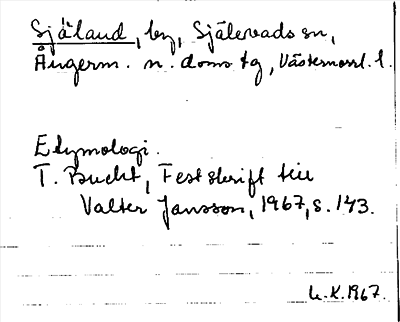 Själand, by, Själevads sn,
Ångerm. n. doms tg, Västernorrl. l.
Etymologi.
T. Bucht, Festskrift till
Valter Jansson, 1967, s. 143.
K. 1967.